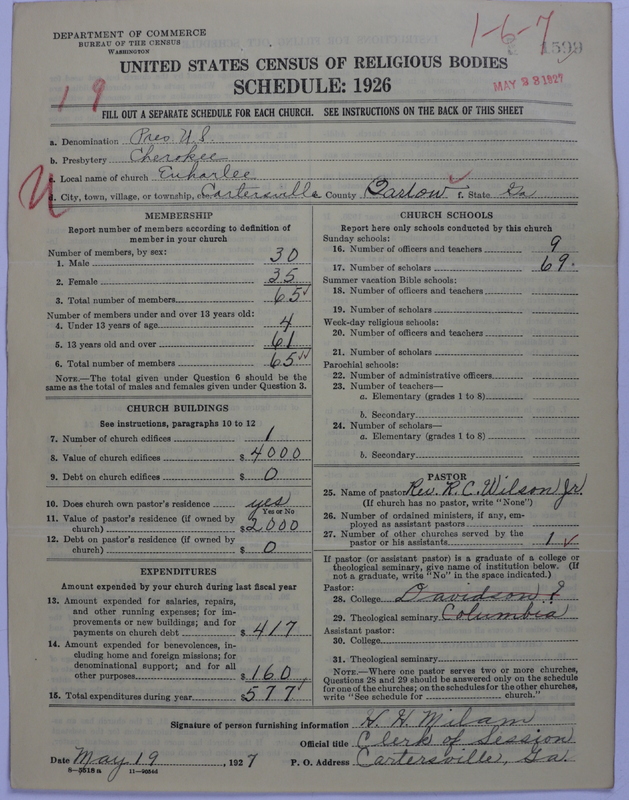 DEPARTMENT OF COMMERCE
BUREAU OF THE CENSUS
WASHINGTON
1-6-7
1599
UNITED STATES CENSUS OF RELIGIOUS BODIES
SCHEDULE: 1926
MAY 28 1927
19
FILL OUT A SEPARATE SCHEDULE FOR EACH CHURCH. SEE INSTRUCTIONS ON THE BACK OF THIS SHEET
a. Denomination Pres U.S.
b. Presbytery Cherokee
c. Local name of church Euharlee
d. City, town, village, or township, etc. Cartersville e. County Bartow f. State Ga
MEMBERSHIP
Report number of members according to definition of
member in your church
Number of members, by sex:
1. Male 30
2. Female 35
3. Total number of members 65
Number of members under and over 13 years old:
4. Under 13 years of age 4
5. 13 years old and over 61
6. Total number of members 65
NOTE.—The total given under Question 6 should be the
same as the total of males and females given under Question 3.
CHURCH BUILDINGS
See instructions, paragraphs 10 to 12
7. Number of church edifices 1
8. Value of church edifices $ 4000
9. Debt on church edifices $ 0
10. Does church own pastor's residence yes
Yes or No
11. Value of pastor's residence (if owned by
church) $ 2000
12. Debt on pastor's residence (if owned by
church) $ 0
EXPENDITURES
Amount expended by your church during last fiscal year
13. Amount expended for salaries, repairs,
and other running expenses; for im-
provements or new buildings; and for
payments on church debt $ 417
14. Amount expended for benevolences, in-
cluding home and foreign missions; for
denominational support; and for all
other purposes $ 160
15. Total expenditures during year $ 577
CHURCH SCHOOLS
Report here only schools conducted by this church
Sunday schools:
16. Number of officers and teachers 9
17. Number of scholars 69
Summer vacation Bible schools:
18. Number of officers and teachers
19. Number of scholars
Week-day religious schools:
20. Number of officers and teachers
21. Number of scholars
Parochial schools:
22. Number of administrative officers
23. Number of teachers—
a. Elementary (grades 1 to 8)
b. Secondary
24. Number of scholars—
a. Elementary (grades 1 to 8)
b. Secondary
PASTOR
25. Name of pastor Rev. R. C. Wilson Jr.
(If church has no pastor, write "None")
26. Number of ordained ministers, if any, em-
ployed as assistant pastors
27. Number of other churches served by the
pastor or his assistants 1
If pastor (or assistant pastor) is a graduate of a college or
theological seminary, give name of institution below. (If
not a graduate, write "No" in the space indicated.)
Pastor:
28. College Davidson ?
29. Theological seminary Columbia
Assistant pastor:
30. College
31. Theological seminary
NOTE.—Where one pastor serves two or more churches,
Questions 28 and 29 should be answered only on the schedule
for one of the churches; on the schedules for the other churches,
write "See schedule for church."
Signature of person furnishing information H. H. Milam
Official title Clerk of Session
Date May 19, 1927 P. O. Address Cartersville, Ga.
8—5518 a